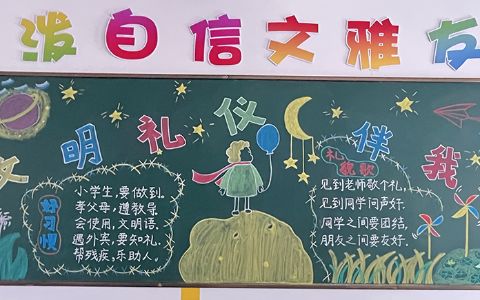 泼自信文雅友
文明礼仪伴我
好习惯
小学生,要做到。
孝父母,遵教导。
会使用,文明语。
遇外宾,要知礼。
帮残疾,乐助人。
礼貌歌
见到老师敬个礼,
见到同学问声好.
同学之间要团结,
朋友之间要友好.